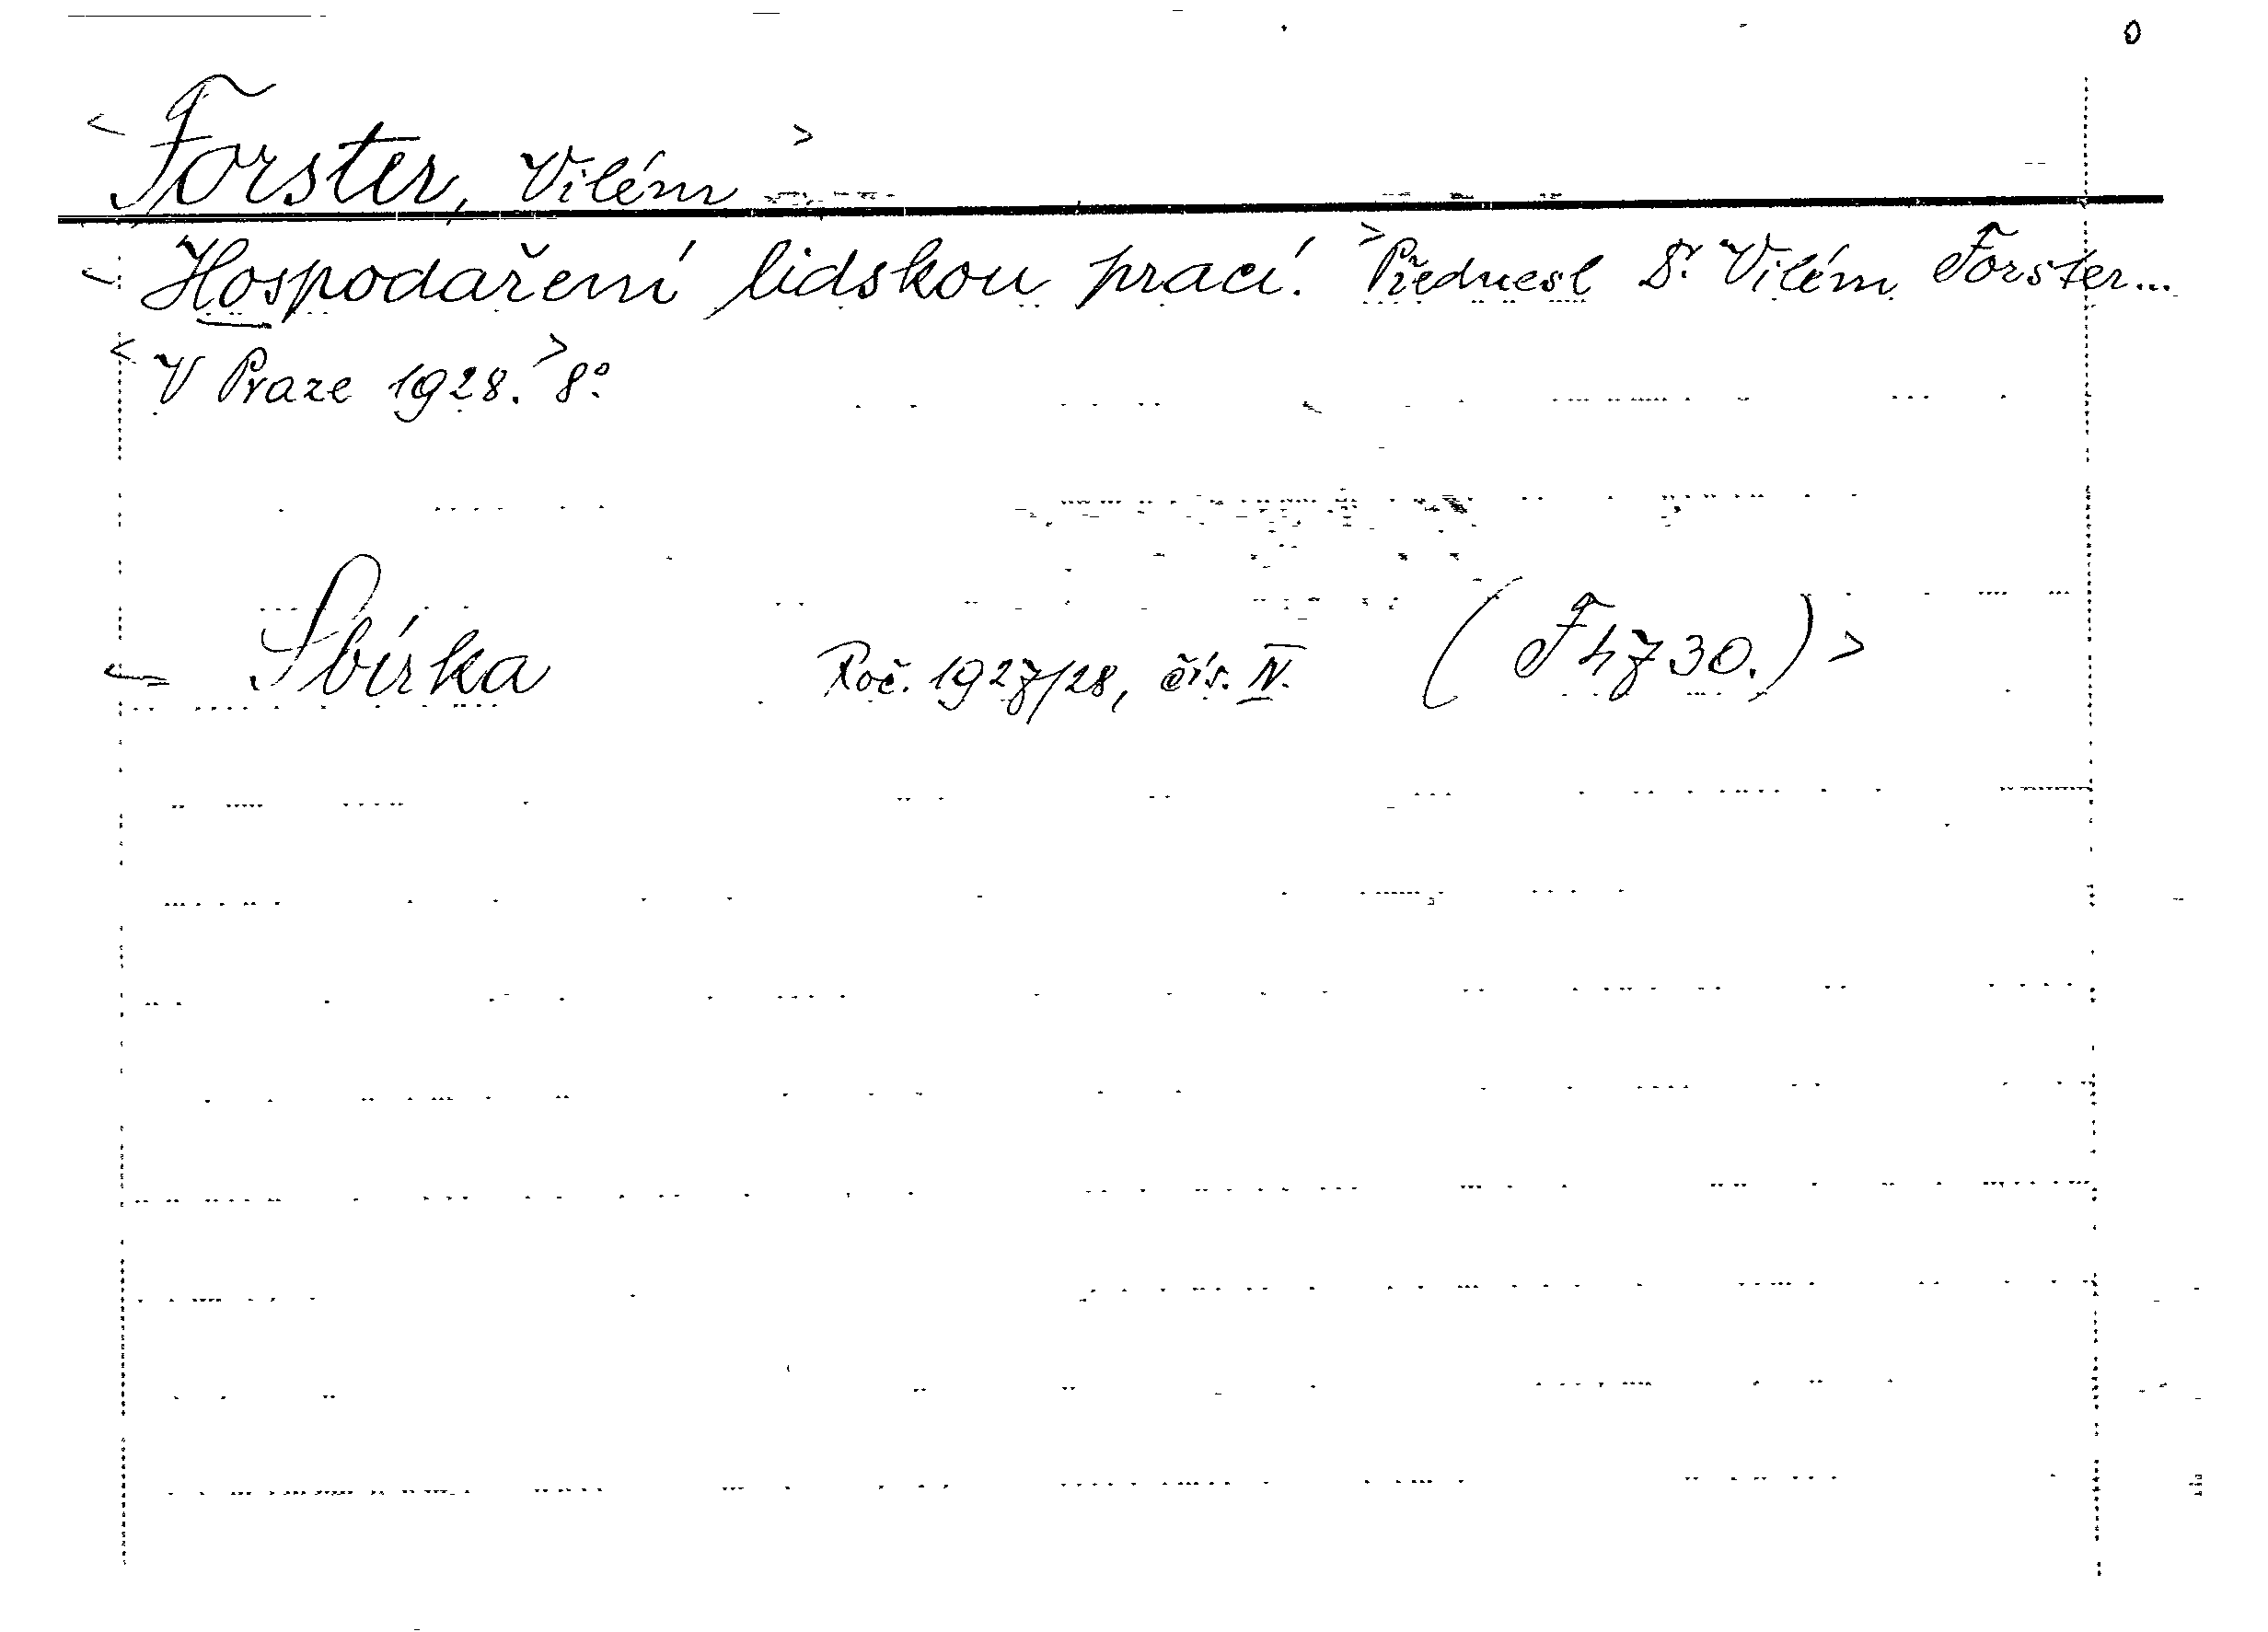 0
< Forster, Vilém >
< Hospodaření lidskou prací. > Přednesl Dr. Vilém Forster...
< V Praze 1928. > 8°.
< Sbírka Roč. 1927/28, čís. IV. (F 4730.) >